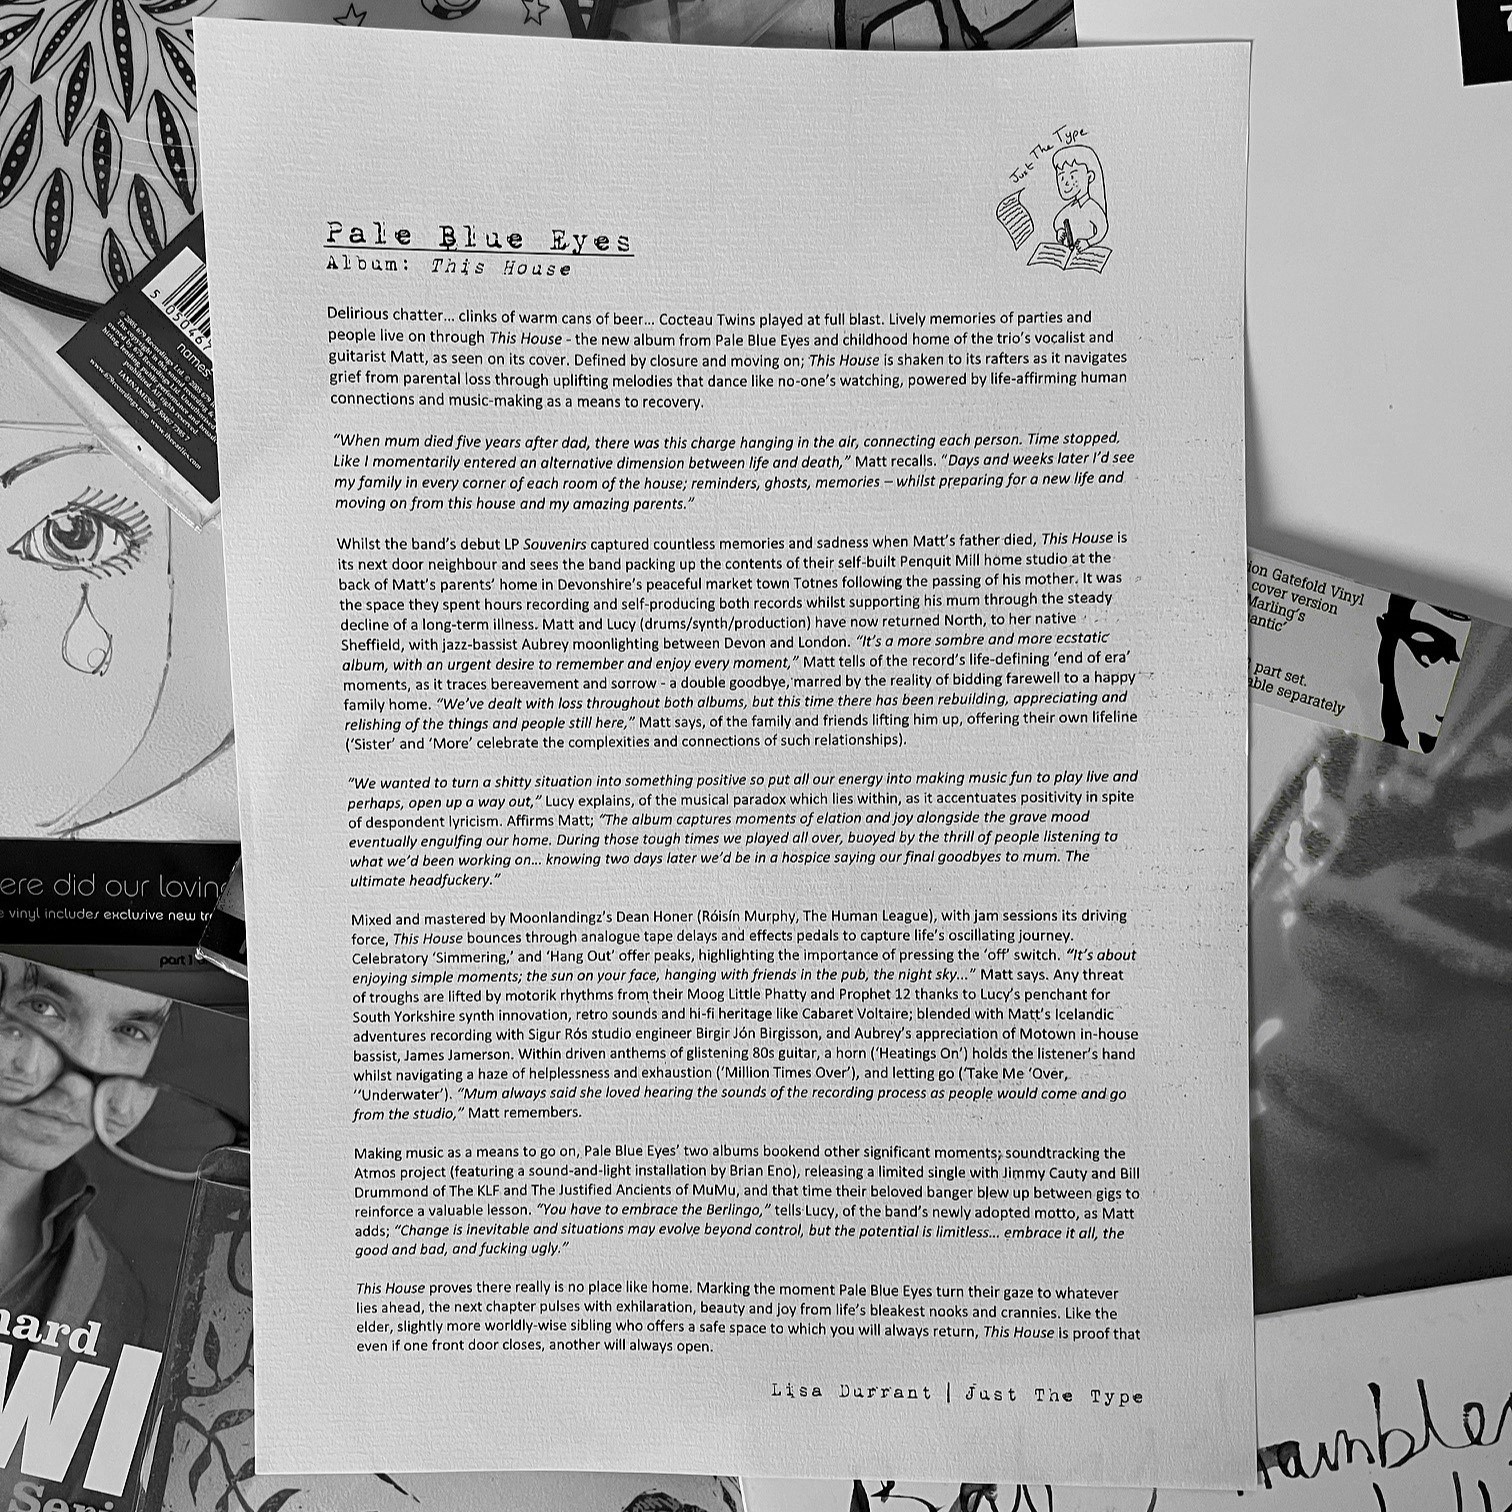 Just The Type
Pale Blue Eyes
Album: This House
Delirious chatter... clinks of warm cans of beer... Cocteau Twins played at full blast. Lively memories of parties and
people live on through This House - the new album from Pale Blue Eyes and childhood home of the trio's vocalist and
guitarist Matt, as seen on its cover. Defined by closure and moving on; This House is shaken to its rafters as it navigates
grief from parental loss through uplifting melodies that dance like no-one's watching, powered by life-affirming human
connections and music-making as a means to recovery.
"When mum died five years after dad, there was this charge hanging in the air, connecting each person. Time stopped.
Like I momentarily entered an alternative dimension between life and death," Matt recalls. "Days and weeks later I'd see
my family in every corner of each room of the house; reminders, ghosts, memories – whilst preparing for a new life and
moving on from this house and my amazing parents."
Whilst the band's debut LP Souvenirs captured countless memories and sadness when Matt's father died, This House is
its next door neighbour and sees the band packing up the contents of their self-built Penquit Mill home studio at the
back of Matt's parents' home in Devonshire's peaceful market town Totnes following the passing of his mother. It was
the space they spent hours recording and self-producing both records whilst supporting his mum through the steady
decline of a long-term illness. Matt and Lucy (drums/synth/production) have now returned North, to her native
Sheffield, with jazz-bassist Aubrey moonlighting between Devon and London. "It's a more sombre and more ecstatic
album, with an urgent desire to remember and enjoy every moment," Matt tells of the record's life-defining 'end of era'
moments, as it traces bereavement and sorrow - a double goodbye, marred by the reality of bidding farewell to a happy
family home. "We've dealt with loss throughout both albums, but this time there has been rebuilding, appreciating and
relishing of the things and people still here," Matt says, of the family and friends lifting him up, offering their own lifeline
('Sister' and 'More' celebrate the complexities and connections of such relationships).
"We wanted to turn a shitty situation into something positive so put all our energy into making music fun to play live and
perhaps, open up a way out," Lucy explains, of the musical paradox which lies within, as it accentuates positivity in spite
of despondent lyricism. Affirms Matt; "The album captures moments of elation and joy alongside the grave mood
eventually engulfing our home. During those tough times we played all over, buoyed by the thrill of people listening to
what we'd been working on... knowing two days later we'd be in a hospice saying our final goodbyes to mum. The
ultimate headfuckery."
Mixed and mastered by Moonlandingz's Dean Honer (Róisín Murphy, The Human League), with jam sessions its driving
force, This House bounces through analogue tape delays and effects pedals to capture life's oscillating journey.
Celebratory 'Simmering,' and 'Hang Out' offer peaks, highlighting the importance of pressing the 'off' switch. "It's about
enjoying simple moments; the sun on your face, hanging with friends in the pub, the night sky..." Matt says. Any threat
of troughs are lifted by motorik rhythms from their Moog Little Phatty and Prophet 12 thanks to Lucy's penchant for
South Yorkshire synth innovation, retro sounds and hi-fi heritage like Cabaret Voltaire; blended with Matt's Icelandic
adventures recording with Sigur Rós studio engineer Birgir Jón Birgisson, and Aubrey's appreciation of Motown in-house
bassist, James Jamerson. Within driven anthems of glistening 80s guitar, a horn ('Heatings On') holds the listener's hand
whilst navigating a haze of helplessness and exhaustion ('Million Times Over'), and letting go ('Take Me 'Over,
''Underwater'). "Mum always said she loved hearing the sounds of the recording process as people would come and go
from the studio," Matt remembers.
Making music as a means to go on, Pale Blue Eyes' two albums bookend other significant moments; soundtracking the
Atmos project (featuring a sound-and-light installation by Brian Eno), releasing a limited single with Jimmy Cauty and Bill
Drummond of The KLF and The Justified Ancients of MuMu, and that time their beloved banger blew up between gigs to
reinforce a valuable lesson. "You have to embrace the Berlingo," tells Lucy, of the band's newly adopted motto, as Matt
adds; "Change is inevitable and situations may evolve beyond control, but the potential is limitless... embrace it all, the
good and bad, and fucking ugly."
This House proves there really is no place like home. Marking the moment Pale Blue Eyes turn their gaze to whatever
lies ahead, the next chapter pulses with exhilaration, beauty and joy from life's bleakest nooks and crannies. Like the
elder, slightly more worldly-wise sibling who offers a safe space to which you will always return, This House is proof that
even if one front door closes, another will always open.
Lisa Durrant | Just The Type
names
ion Gatefold Vinyl
cover version
Marling's
antic'
part set.
able separately
ere did our loving
vinyl includes exclusive new tr
part 1
hard
wl